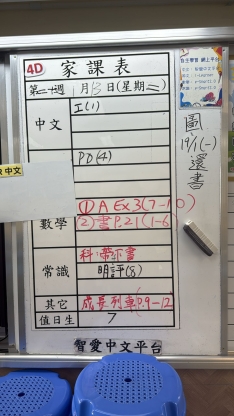 4D 家課表
第二十週 1月13日(星期二)
中文 I(1)
PD(4)
中文
數學 ① A Ex3(7-10)
② 書P.21(1-6)
常識 科·帶Tr書
明評(8)
其它 成長列車(P.9-12)
值日生 7
智愛中文平台
圖
19/1(一)
還書
自主學習 網上平台